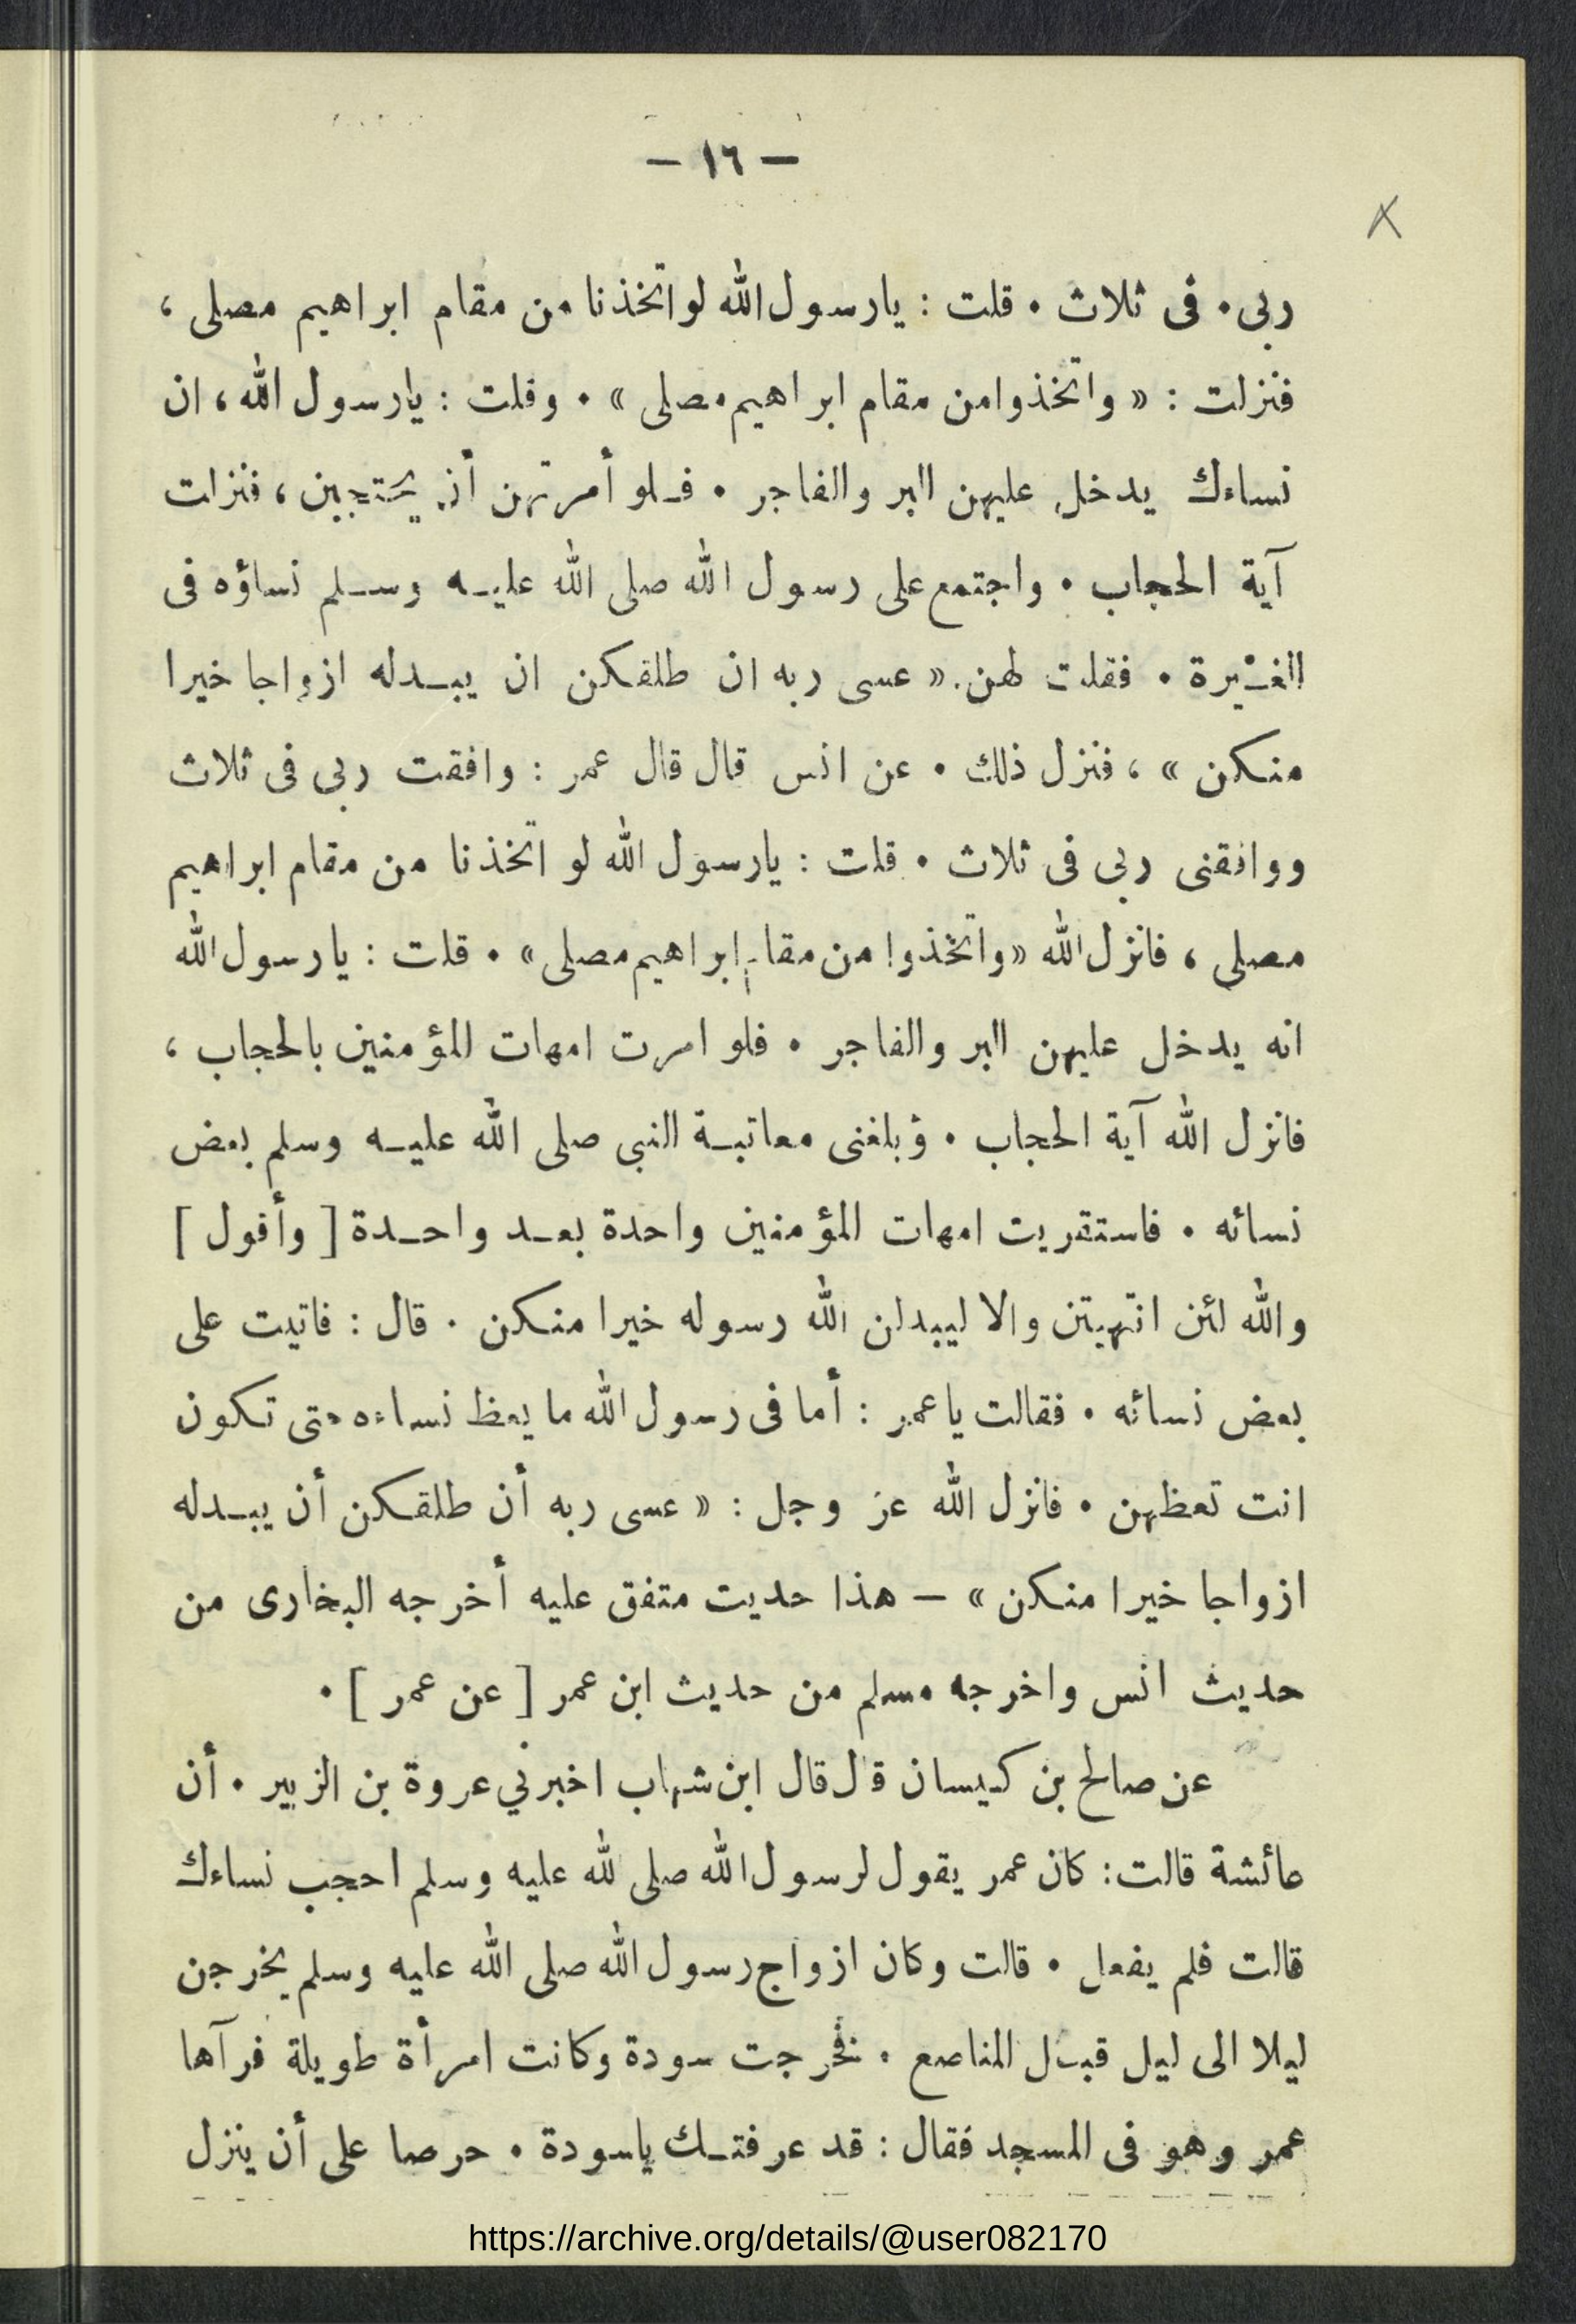 — ١٦ —
ربى • فى ثلاث • قلت : يارسول الله لو اتخذنا من مقام ابراهيم مصلى ،
فنزلت : « واتخذوا من مقام ابراهيم مصلى » • وقلت : يارسول الله ، ان
نساءك يدخل عليهن البر والفاجر • فلو أمرتهن أن يحتجبن ، فنزلت
آية الحجاب • واجتمع على رسول الله صلى الله عليه وسلم نساؤه فى
الغيرة • فقلت لهن . « عسى ربه ان طلقكن ان يبدله ازواجا خيرا
منكن » ، فنزل ذلك • عن انس قال قال عمر : وافقت ربى فى ثلاث
ووافقنى ربى فى ثلاث • قلت : يارسول الله لو اتخذنا من مقام ابراهيم
مصلى ، فانزل الله « واتخذوا من مقام ابراهيم مصلى » • قلت : يارسول الله
انه يدخل عليهن البر والفاجر • فلو امرت امهات المؤمنين بالحجاب ،
فانزل الله آية الحجاب • وبلغنى معاتبة النبى صلى الله عليه وسلم بعض
نسائه • فاستقريت امهات المؤمنين واحدة بعد واحدة [ وأقول ]
والله لئن انتهيتن والا ليبدلن الله رسوله خيرا منكن • قال : فاتيت على
بعض نسائه • فقالت ياعمر : أما فى رسول الله ما يعظ نساءه حتى تكون
انت تعظهن • فانزل الله عز وجل : « عسى ربه أن طلقكن أن يبدله
ازواجا خيرا منكن » — هذا حديث متفق عليه أخرجه البخارى من
حديث انس واخرجه مسلم من حديث ابن عمر [ عن عمر ] •
عن صالح بن كيسان قال قال ابن شهاب اخبرني عروة بن الزبير • أن
عائشة قالت : كان عمر يقول لرسول الله صلى لله عليه وسلم احجب نساءك
قالت فلم يفعل • قالت وكان ازواج رسول الله صلى الله عليه وسلم يخرجن
ليلا الى ليل قبل المناصع • فخرجت سودة وكانت امرأة طويلة فرآها
عمر وهو فى المسجد فقال : قد عرفتك ياسودة • حرصا على أن ينزل
https://archive.org/details/@user082170